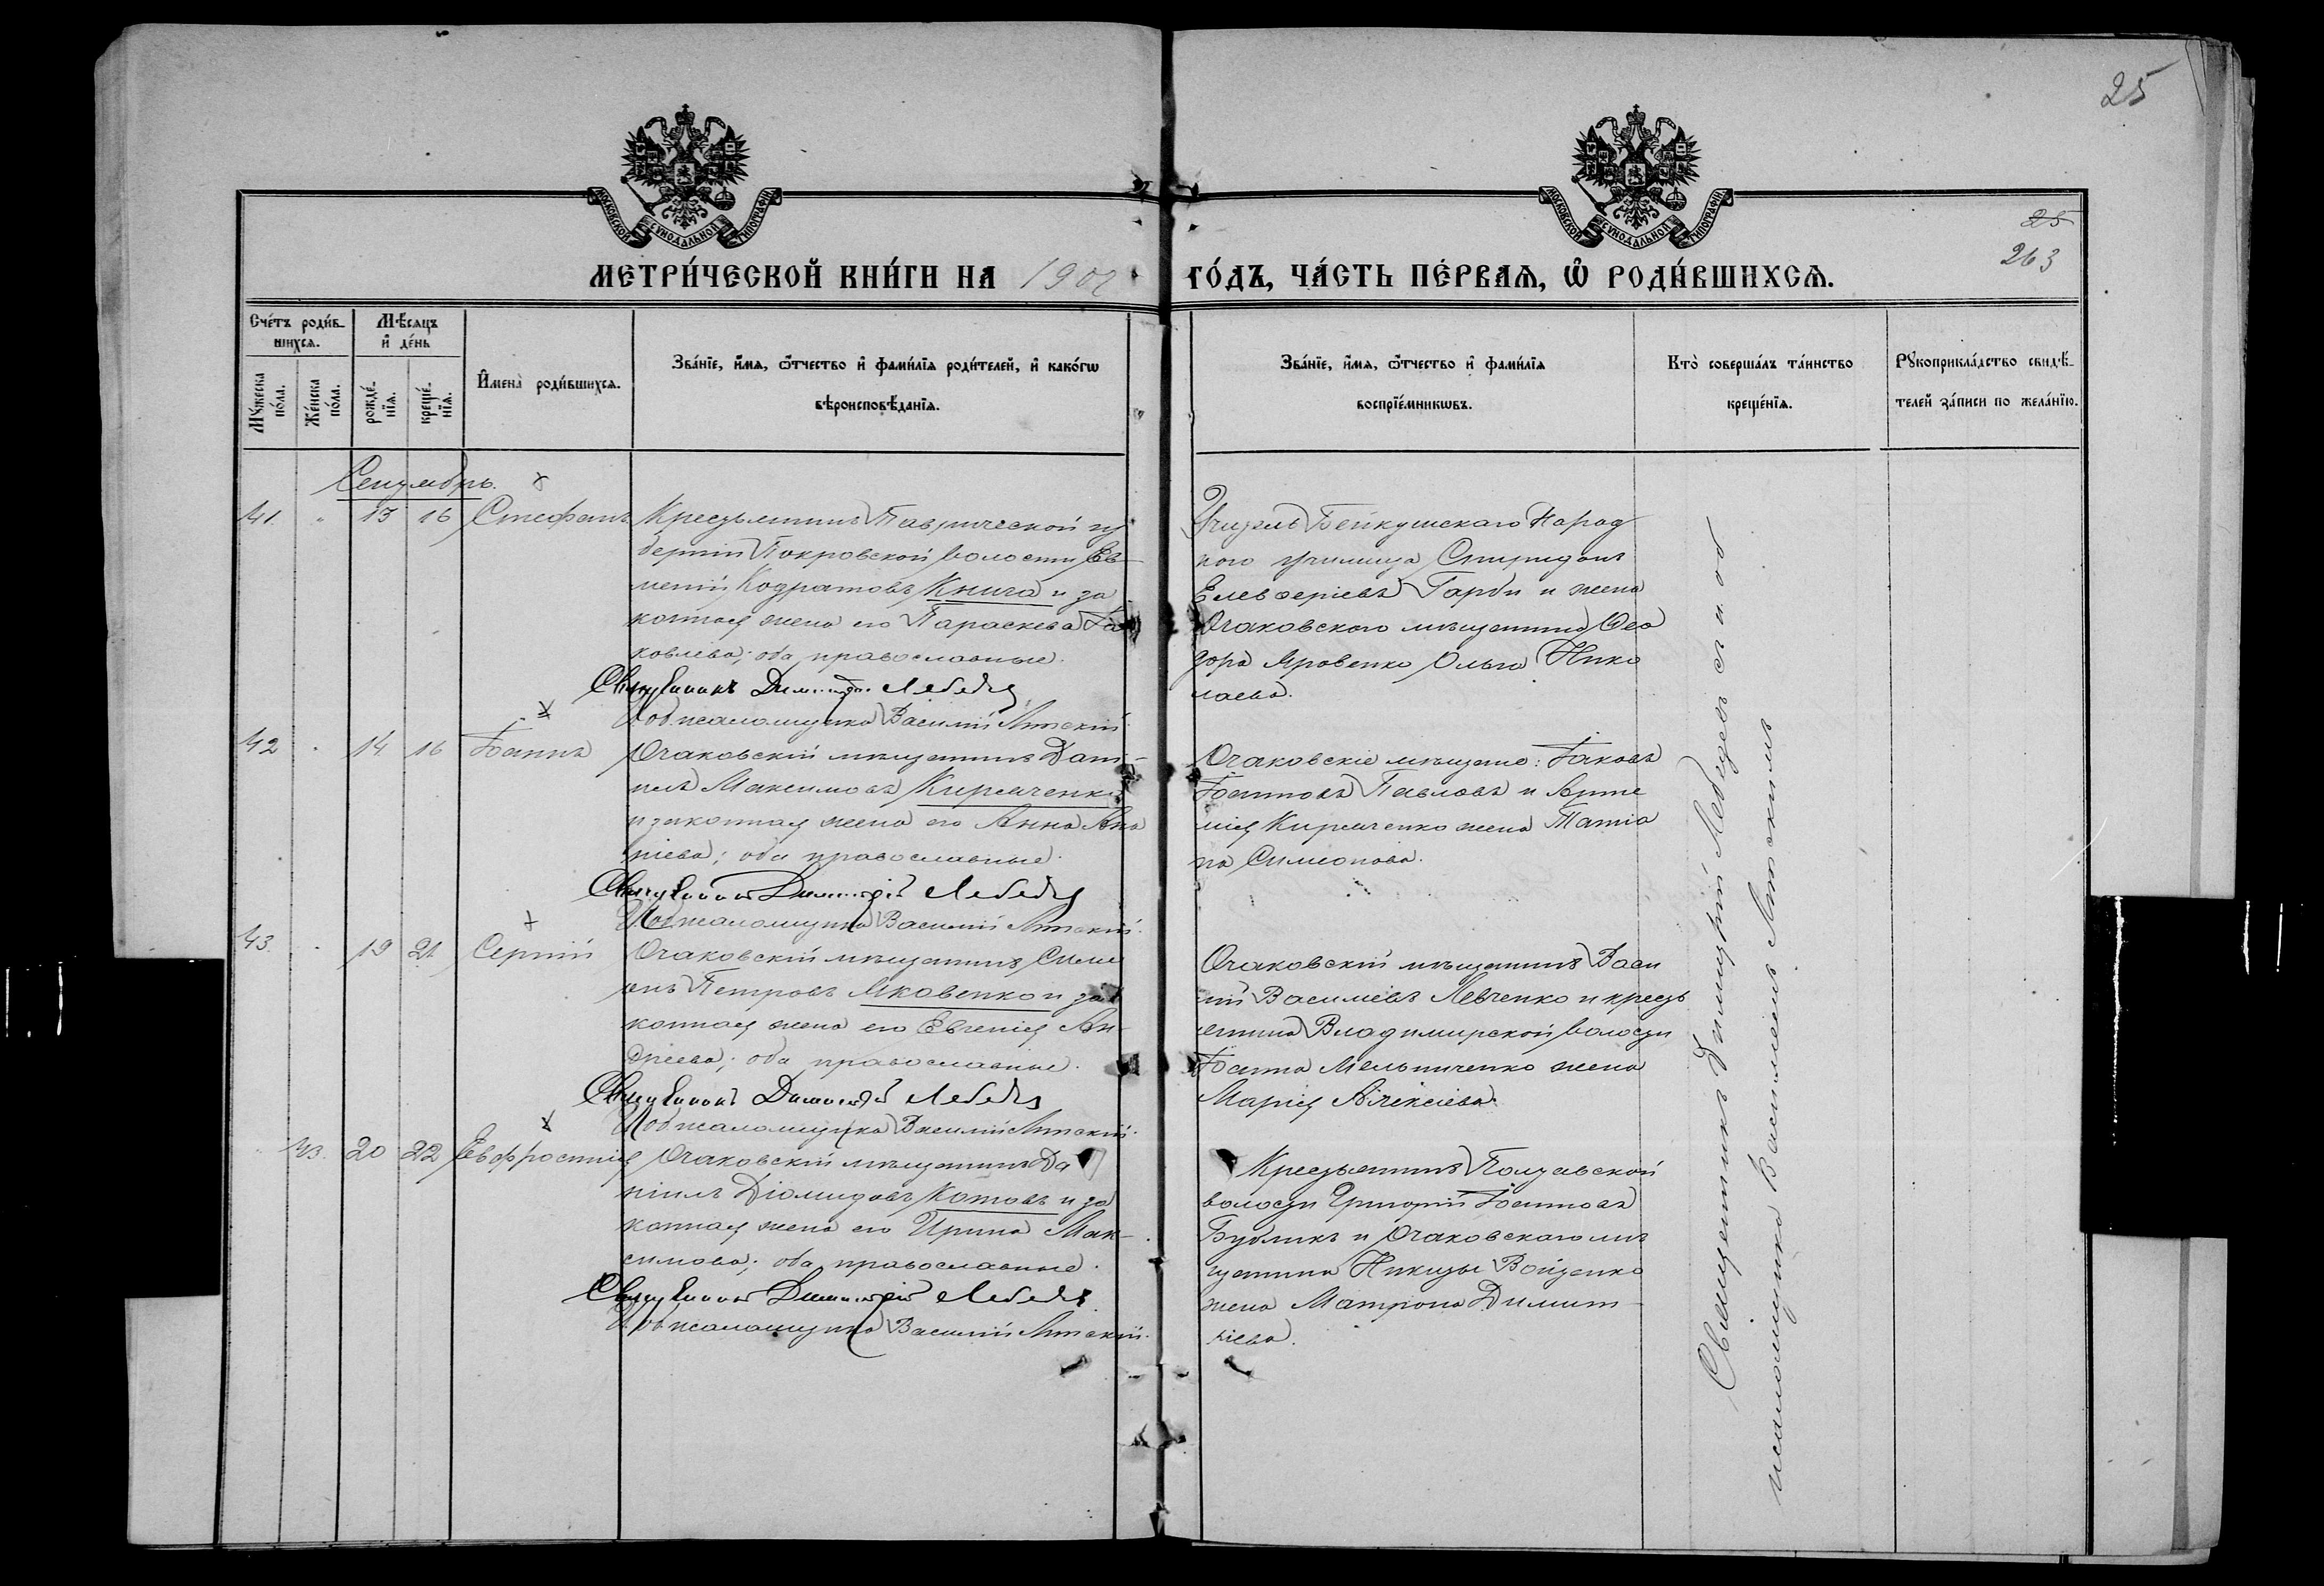 25
МОСКОВСКОЙ СѴНОДАЛЬНОЙ ТИПОГРАФІИ
МОСКОВСКОЙ СѴНОДАЛЬНОЙ ТИПОГРАФІИ
25
263
МЕТРИ́ЧЕСКОЙ КНИ́ГИ НА 1902 ГО́ДЪ, ЧА́СТЬ ПЕ́РВАѦ, Ѽ РОДИ́ВШИХСѦ.
Сче́тъ роди́в-
шихсѧ.
Мꙋ́жеска по́ла.
Же́нска по́ла.
Мѣ́сѧцъ
и҆ де́нь
рожде́-
нїѧ.
креще́-
нїѧ.
И҆мена̀ роди́вшихсѧ.
Зва́нїе, и҆́мѧ, ѻ҆́тчество и҆ фами́лїѧ роди́телей, и҆ како́гѡ
вѣроисповѣ́данїѧ.
Зва́нїе, и҆́мѧ, ѻ҆́тчество и҆ фами́лїѧ
воспрїе́мникѡвъ.
Кто̀ соверша́лъ та́инство
креще́нїѧ.
Рꙋкоприкла́дство свидѣ́-
телей за́писи по жела́нїю.
Сентябрь.
41. " 13 16 Стефанъ
Крестьянинъ Таврической гу
берніи Покровской волости Ев-
меній Кодратовъ Книга и за
конная жена его Параскева Іа
ковлева; оба православные.
Священникъ Димитрій Лебедев
И. об псаломщика Василій Литскій
Учитель Бейкушскаго Народ
ного училища Спиридонъ
Елевферіевъ Гарби и жена
Очаковского мѣщанина Ѳео
дора Яровенко Ольга Нико
лаева.
42 " 14 16 Іоаннъ
Очаковскій мѣщанинъ Дани-
илъ Максимовъ Кирьяченко
и законная жена его Анна Ана
ніева; оба православные.
Священникъ Димитрій Лебедев
И. об псаломщика Василій Литскій.
Очаковскіе мѣщане: Іаковъ
Іоанновъ Павловъ и Арте
мія Кирьяченко жена Татіа
на Симеонова.
43. " 19 21 Сергій
Очаковскій мѣщанинъ Симе
онъ Петровъ Яковенко и за
конная жена его Евгенія Ан-
дреева; оба православные.
Священникъ Димитрій Лебедев
И. об псаломщика Василій Литскій.
Очаковскій мѣщанинъ Васи
лій Василіевъ Левченко и кресть
янина Владимирской волости
Іоанна Мельниченко жена
Марія Алексіева.
" 43. 20 22 Евфросинія
Очаковскій мѣщанинъ Да
ніилъ Діомидовъ Котовъ и за
конная жена его Ирина Мак-
симова; оба православные.
Священникъ Димитрій Лебедев
И. об псаломщика Василій Литскій.
Крестьянинъ Полтавской
волости Григорій Іоанновъ
Бубликъ и Очаковскаго мѣ
щанина Никиты Войтенко
жена Матрона Димит-
ріева.
Священникъ Димитрій Лебедевъ съ и. об
псаломщика Василіемъ Литскимъ